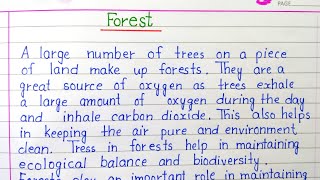 PAGE
Forest
A large number of trees on a piece
of land make up forests. They are a
great source of oxygen as trees exhale
a large amount of oxygen during the day
and inhale carbon dioxide. This also helps
in keeping the air pure and environment
clean. Tress in forests help in maintaining
ecological balance and biodiversity.
Forests play an important role in maintaining